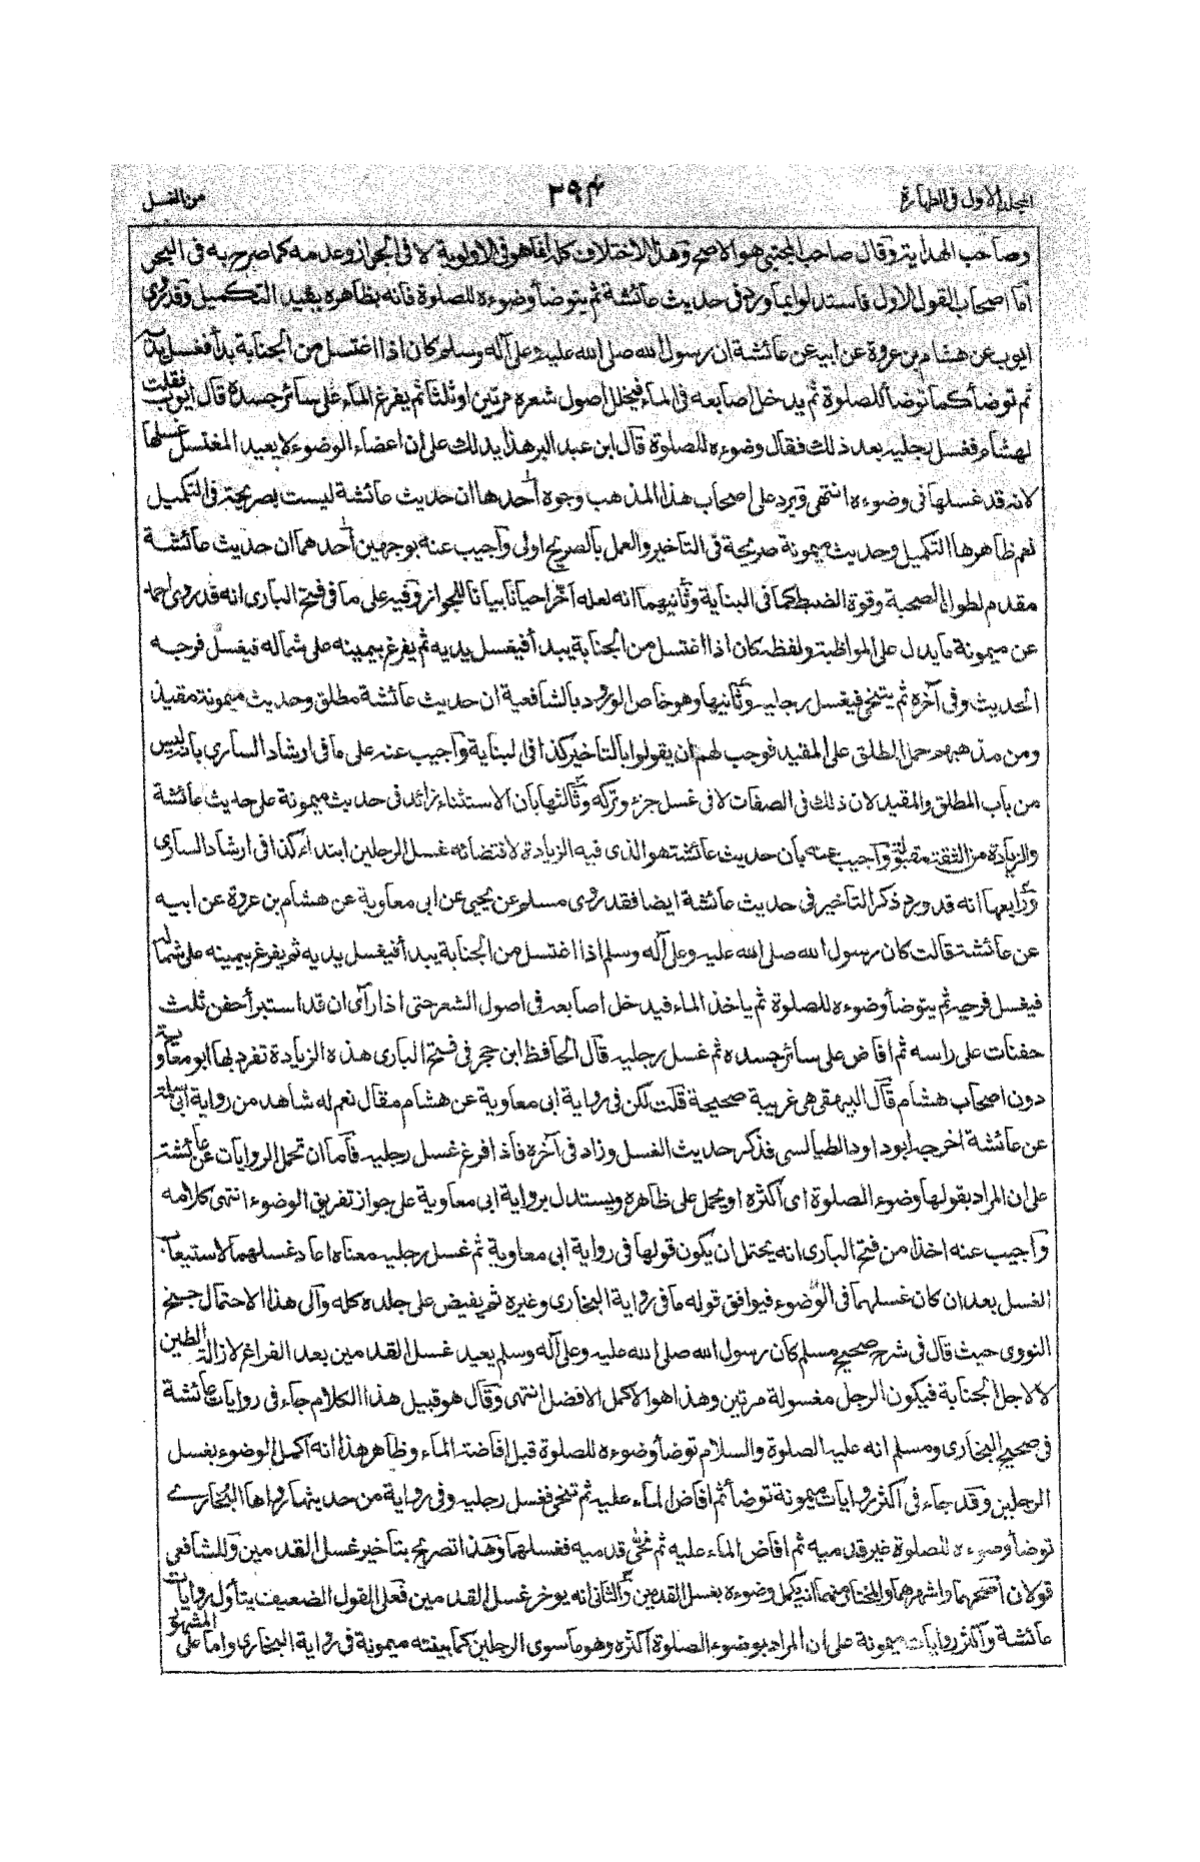 المجلد الاول فى الطهارة ٢٩٤ من الغسل
وصاحب الهداية وقال صاحب المجتبى هو الاصح وهذا الاختلاف كله انما هو فى الاولوية لا فى الجواز وعدمه كما صرح به فى البحر
اما اصحاب القول الاول فاستدلوا بما ورد فى حديث عائشة ثم يتوضأ وضوءه للصلوة فانه بظاهره يفيد التكميل وقد روى
ايوب عن هشام بن عروة عن ابيه عن عائشة ان رسول الله صلى الله عليه وعلى آله وسلم كان اذا اغتسل من الجنابة بدأ فغسل يديه
ثم توضأ كما توضأ للصلوة ثم يدخل اصابعه فى الماء فيخلل اصول شعره مرتين او ثلثا ثم يفرغ الماء على سائر جسده قال ايوب فقلت
لهشام فغسل رجليه بعد ذلك فقال وضوءه للصلوة قال ابن عبد البر هذا يدلك على ان اعضاء الوضوء لا يعيد المغتسل غسلها
لانه قد غسلها فى وضوءه انتهى ويرد على اصحاب هذا المذهب وجوه احدها ان حديث عائشة ليست بصريحة فى التكميل
نعم ظاهرها التكميل وحديث ميمونة صريحة فى التاخير والعمل بالصريح اولى واجيب عنه بوجهين احدهما ان حديث عائشة
مقدم لطول الصحبة وقوة الضبط كما فى البناية وثانيهما انه لعله اخر احيانا بيانا للجواز وفيه على ما فى فتح البارى انه قد روى احمد
عن ميمونة ما يدل على المواظبة ولفظه كان اذا اغتسل من الجنابة يبدأ فيغسل يديه ثم يفرغ بيمينه على شماله فيغسل فرجه
الحديث وفى آخره ثم يتنحى فيغسل رجليه وثانيها وهو خاص الورود بالشافعية ان حديث عائشة مطلق وحديث ميمونة مقيد
ومن مذهبهم حمل المطلق على المقيد فوجب لهم ان يقولوا بالتاخير كذا فى البناية واجيب عنه على ما فى ارشاد السارى بانه ليس
من باب المطلق والمقيد لان ذلك فى الصفات لا فى غسل جزء وتركه وثالثها بان الاستثناء زائد فى حديث ميمونة على حديث عائشة
والزيادة من الثقة مقبولة واجيب عنه بأن حديث عائشة هو الذى فيه الزيادة لاقتضائه غسل الرجلين ابتداء كذا فى ارشاد السارى
ورابعها انه قد ورد ذكر التاخير فى حديث عائشة ايضا فقد روى مسلم عن يحيى عن ابى معاوية عن هشام بن عروة عن ابيه
عن عائشة قالت كان رسول الله صلى الله عليه وعلى آله وسلم اذا اغتسل من الجنابة يبدأ فيغسل يديه ثم يفرغ بيمينه على شماله
فيغسل فرجه ثم يتوضأ وضوءه للصلوة ثم ياخذ الماء فيدخل اصابعه فى اصول الشعر حتى اذا رآى ان قد استبرأ حفن ثلث
حفنات على راسه ثم افاض على سائر جسده ثم غسل رجليه قال الحافظ ابن حجر فى فتح البارى هذه الزيادة تفرد بها ابو معاوية
دون اصحاب هشام قال البيهقى هى غريبة صحيحة قلت لكن فى رواية ابى معاوية عن هشام مقال نعم له شاهد من رواية ابى سلمة
عن عائشة اخرجه ابو داود الطيالسى فذكر حديث الغسل وزاد فى آخره فأذا فرغ غسل رجليه فأما ان تحمل الروايات عن عائشة
على ان المراد بقولها وضوء الصلوة اى أكثره او يحمل على ظاهره ويستدل برواية ابى معاوية على جواز تفريق الوضوء انتهى كلامه
واجيب عنه اخذا من فتح البارى انه يحتمل ان يكون قولها فى رواية ابى معاوية ثم غسل رجليه معناه اعاد غسلهما لاستيعاب
الغسل بعد ان كان غسلهما فى الوضوء فيوافق قوله ما فى رواية البخارى وغيره ثم يفيض على جلده كله وآلى هذا الاحتمال جنح
النووى حيث قال فى شرح صحيح مسلم كان رسول الله صلى الله عليه وعلى آله وسلم يعيد غسل القدمين بعد الفراغ لازالة الطين
لا لاجل الجنابة فيكون الرجل مغسولة مرتين وهذا هو الاكمل الافضل انتهى وقال هو قبيل هذا الكلام جاء فى روايات عائشة
فى صحيح البخارى ومسلم انه عليه الصلوة والسلام توضأ وضوءه للصلوة قبل افاضة الماء وظاهر هذا انه أكمل الوضوء بغسل
الرجلين وقد جاء فى أكثر روايات ميمونة توضأ ثم افاض الماء عليه ثم تنحى فغسل رجليه وفى رواية من حديثها رواها البخارى
توضأ وضوءه للصلوة غير قدميه ثم افاض الماء عليه ثم نحى قدميه فغسلهما وهذا تصريح بتاخير غسل القدمين وللشافعى
قولان اصحهما واشهرهما والمختار منهما انه يكمل وضوءه بغسل القدمين والثانى انه يوخر غسل القدمين فعلى القول الضعيف يتأول روايات
عائشة وأكثر روايات ميمونة على ان المراد بوضوء الصلوة أكثره وهو ما سوى الرجلين كما بينته ميمونة فى رواية البخارى واما على المشهور